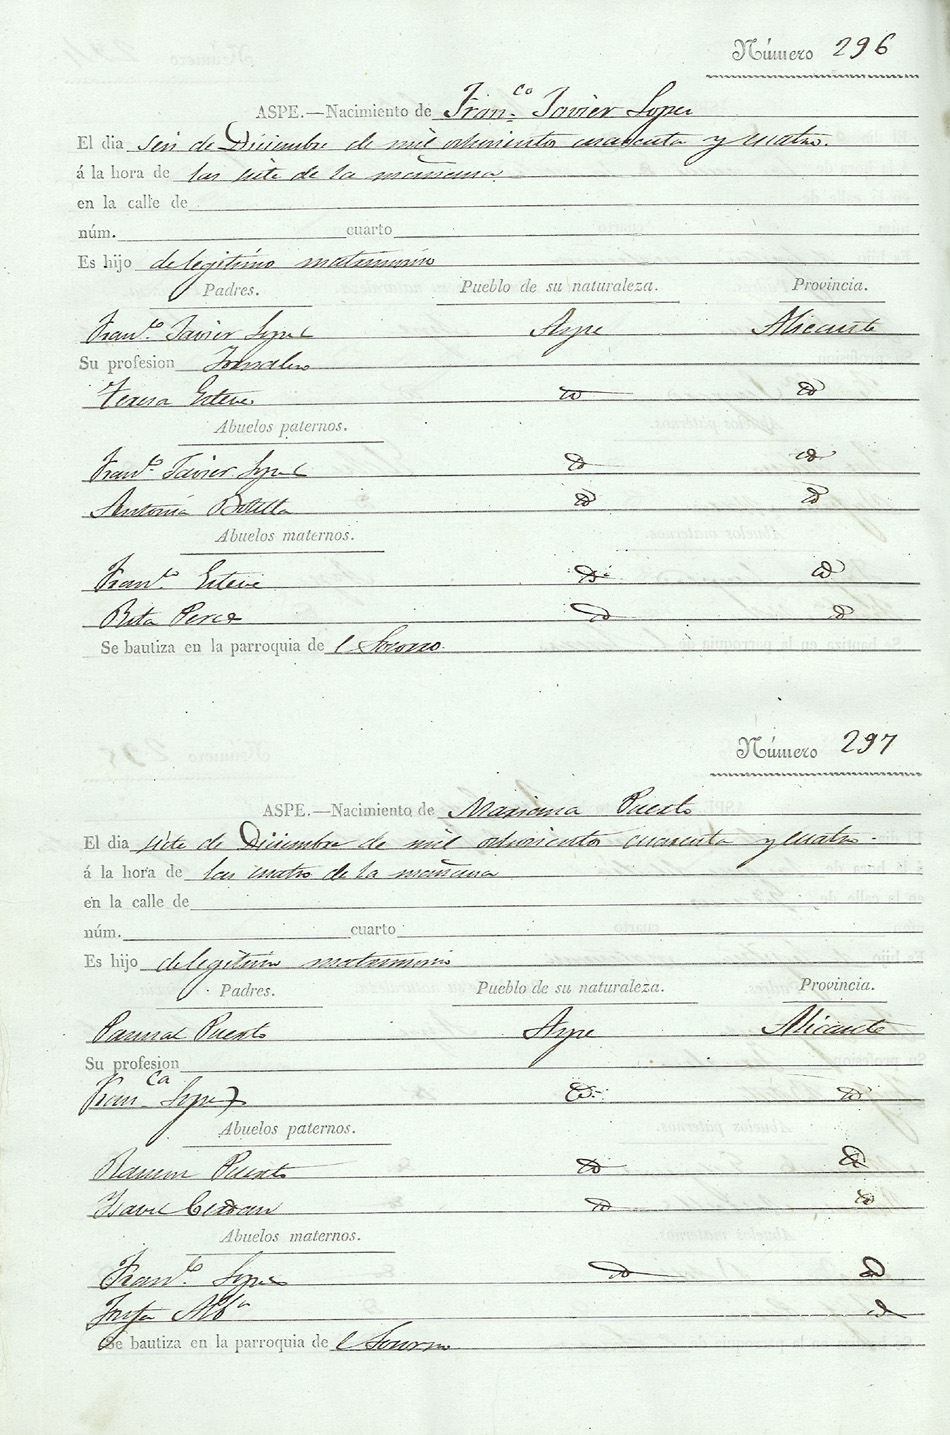 Número 296
ASPE.—Nacimiento de Fran.co Javier Lopez
El dia seis de Diciembre de mil ochocientos cuarenta y cuatro.
á la hora de las siete de la mañana
en la calle de
núm. cuarto
Es hijo de legitimo matrimonio
Padres. Pueblo de su naturaleza. Provincia.
Fran.co Javier Lopez Aspe Alicante
Su profesion Jornalero
Teresa Esteve id id
Abuelos paternos.
Fran.co Javier Lopez id id
Antonia Botella id id
Abuelos maternos.
Fran.co Esteve id id
Rita Perez id id
Se bautiza en la parroquia de l Socorro
Número 297
ASPE.—Nacimiento de Mariana Puerto
El dia siete de Diciembre de mil ochocientos cuarenta y cuatro.
á la hora de las cuatro de la mañana
en la calle de
núm. cuarto
Es hijo de legitimo matrimonio
Padres. Pueblo de su naturaleza. Provincia.
Pascual Puerto Aspe Alicante
Su profesion
Fran.ca Lopez id id
Abuelos paternos.
Ramon Puerto id id
Isavel Cerdan id id
Abuelos maternos.
Fran.co Lopez id id
Josefa id
Se bautiza en la parroquia de l Socorro